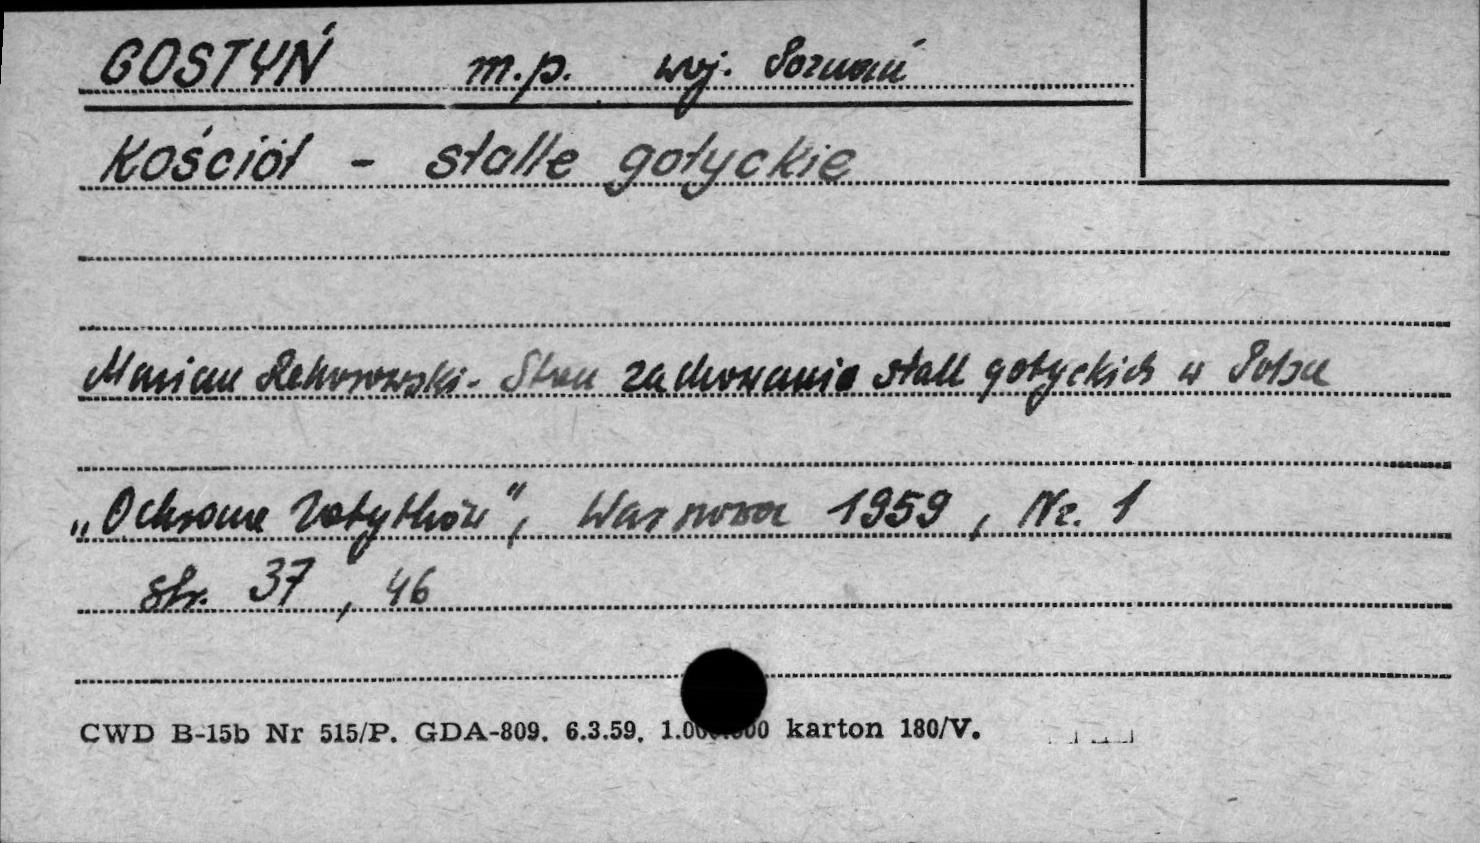 GOSTYŃ m.p. woj. Poznań
Kościół - stalle gotyckie
Marian Rehorowski - Stan zachowania stall gotyckich w Polsce
„Ochrona Zabytków", Warszawa 1959, Nr. 1
str. 37, 46
CWD B-15b Nr 515/P. GDA-809. 6.3.59. 1.000.000 karton 180/V.